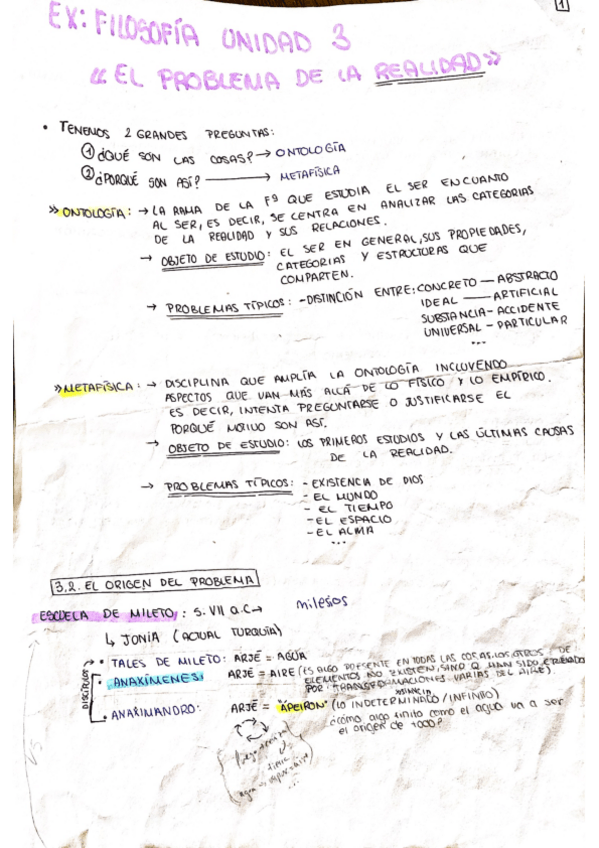 1
EX: FILOSOFÍA UNIDAD 3
"EL PROBLEMA DE LA REALIDAD"
• TENEMOS 2 GRANDES PREGUNTAS:
① ¿QUÉ SON LAS COSAS? → ONTOLOGÍA
② ¿PORQUÉ SON ASÍ? → METAFÍSICA
» ONTOLOGÍA: → LA RAMA DE LA Fª QUE ESTUDIA EL SER EN CUANTO
AL SER, ES DECIR, SE CENTRA EN ANALIZAR LAS CATEGORIAS
DE LA REALIDAD Y SUS RELACIONES.
→ OBJETO DE ESTUDIO: EL SER EN GENERAL, SUS PROPIEDADES,
CATEGORIAS Y ESTRUCTURAS QUE
COMPARTEN.
→ PROBLEMAS TÍPICOS: - DISTINCIÓN ENTRE: CONCRETO — ABSTRACTO
IDEAL — ARTIFICIAL
SUBSTANCIA - ACCIDENTE
UNIVERSAL - PARTICULAR
...
» METAFÍSICA: → DISCIPLINA QUE AMPLÍA LA ONTOLOGÍA INCLUYENDO
ASPECTOS QUE VAN MÁS ALLÁ DE LO FÍSICO Y LO EMPÍRICO.
ES DECIR, INTENTA PREGUNTARSE O JUSTIFICARSE EL
PORQUÉ MOTIVO SON ASÍ.
→ OBJETO DE ESTUDIO: LOS PRIMEROS ESTUDIOS Y LAS ÚLTIMAS CAUSAS
DE LA REALIDAD.
→ PROBLEMAS TÍPICOS: - EXISTENCIA DE DIOS
- EL MUNDO
- EL TIEMPO
- EL ESPACIO
- EL ALMA
...
3.2. EL ORIGEN DEL PROBLEMA
ESCUELA DE MILETO: S. VII a.C → milesios
↳ JONIA (ACTUAL TURQUÍA)
DISCÍPULOS
• TALES DE MILETO: ARJÉ = AGUA
• ANAXÍMENES: ARJÉ = AIRE (ES ALGO PRESENTE EN TODAS LAS COSAS. LOS OTROS
ELEMENTOS NO EXISTEN, SINO Q HAN SIDO DE
POR TRANSFORMACIONES VARIAS DEL AIRE).
• ANAXIMANDRO: ARJÉ = "ÁPEIRON" (LO INDETERMINADO / INFINITO)
¿cómo algo finito como el agua va a ser
el origen de todo?